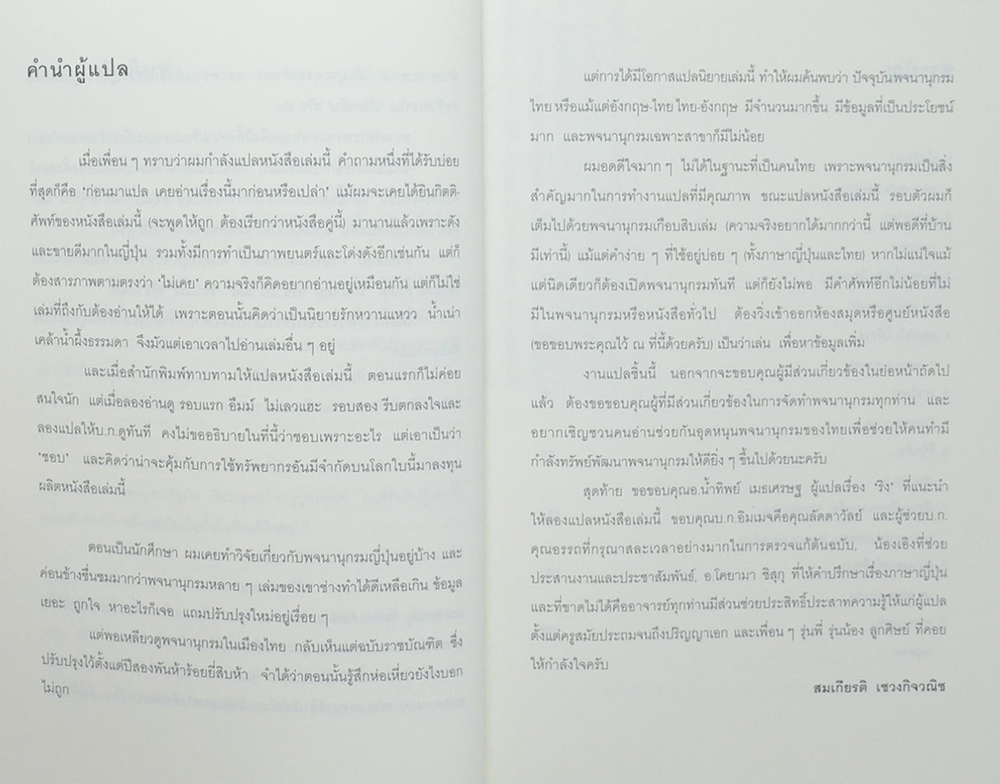 คำนำผู้แปล
เมื่อเพื่อน ๆ ทราบว่าผมกำลังแปลหนังสือเล่มนี้ คำถามหนึ่งที่ได้รับบ่อย
ที่สุดก็คือ ‘ก่อนมาแปล เคยอ่านเรื่องนี้มาก่อนหรือเปล่า’ แม้ผมจะเคยได้ยินกิตติ-
ศัพท์ของหนังสือเล่มนี้ (จะพูดให้ถูก ต้องเรียกว่าหนังสือคู่นี้) มานานแล้วเพราะดัง
และขายดีมากในญี่ปุ่น รวมทั้งมีการทำเป็นภาพยนตร์และโด่งดังอีกเช่นกัน แต่ก็
ต้องสารภาพตามตรงว่า ‘ไม่เคย’ ความจริงก็คิดอยากอ่านอยู่เหมือนกัน แต่ก็ไม่ใช่
เล่มที่ถึงกับต้องอ่านให้ได้ เพราะตอนนั้นคิดว่าเป็นนิยายรักหวานแหวว น้ำเน่า
เคล้าน้ำผึ้งธรรมดา จึงมัวแต่เอาเวลาไปอ่านเล่มอื่น ๆ อยู่
และเมื่อสำนักพิมพ์ทาบทามให้แปลหนังสือเล่มนี้ ตอนแรกก็ไม่ค่อย
สนใจนัก แต่เมื่อลองอ่านดู รอบแรก อืมม์ ไม่เลวแฮะ รอบสอง รีบตกลงใจและ
ลองแปลให้บ.ก.ดูทันที คงไม่ขออธิบายในที่นี้ว่าชอบเพราะอะไร แต่เอาเป็นว่า
‘ชอบ’ และคิดว่าน่าจะคุ้มกับการใช้ทรัพยากรอันมีจำกัดบนโลกใบนี้มาลงทุน
ผลิตหนังสือเล่มนี้
ตอนเป็นนักศึกษา ผมเคยทำวิจัยเกี่ยวกับพจนานุกรมญี่ปุ่นอยู่บ้าง และ
ค่อนข้างชื่นชมมากว่าพจนานุกรมหลาย ๆ เล่มของเขาช่างทำได้ดีเหลือเกิน ข้อมูล
เยอะ ถูกใจ หาอะไรก็เจอ แถมปรับปรุงใหม่อยู่เรื่อย ๆ
แต่พอเหลียวดูพจนานุกรมในเมืองไทย กลับเห็นแต่ฉบับราชบัณฑิต ซึ่ง
ปรับปรุงไว้ตั้งแต่ปีสองพันห้าร้อยยี่สิบห้า จำได้ว่าตอนนั้นรู้สึกห่อเหี่ยวยังไงบอก
ไม่ถูก
แต่การได้มีโอกาสแปลนิยายเล่มนี้ ทำให้ผมค้นพบว่า ปัจจุบันพจนานุกรม
ไทย หรือแม้แต่อังกฤษ-ไทย ไทย-อังกฤษ มีจำนวนมากขึ้น มีข้อมูลที่เป็นประโยชน์
มาก และพจนานุกรมเฉพาะสาขาก็มีไม่น้อย
ผมอดดีใจมาก ๆ ไม่ได้ในฐานะที่เป็นคนไทย เพราะพจนานุกรมเป็นสิ่ง
สำคัญมากในการทำงานแปลที่มีคุณภาพ ขณะแปลหนังสือเล่มนี้ รอบตัวผมก็
เต็มไปด้วยพจนานุกรมเกือบสิบเล่ม (ความจริงอยากได้มากกว่านี้ แต่พอดีที่บ้าน
มีเท่านี้) แม้แต่คำง่าย ๆ ที่ใช้อยู่บ่อย ๆ (ทั้งภาษาญี่ปุ่นและไทย) หากไม่แน่ใจแม้
แต่นิดเดียวก็ต้องเปิดพจนานุกรมทันที แต่ก็ยังไม่พอ มีคำศัพท์อีกไม่น้อยที่ไม่
มีในพจนานุกรมหรือหนังสือทั่วไป ต้องวิ่งเข้าออกห้องสมุดหรือศูนย์หนังสือ
(ขอขอบพระคุณไว้ ณ ที่นี้ด้วยครับ) เป็นว่าเล่น เพื่อหาข้อมูลเพิ่ม
งานแปลชิ้นนี้ นอกจากจะขอบคุณผู้มีส่วนเกี่ยวข้องในย่อหน้าถัดไป
แล้ว ต้องขอขอบคุณผู้ที่มีส่วนเกี่ยวข้องในการจัดทำพจนานุกรมทุกท่าน และ
อยากเชิญชวนคนอ่านช่วยกันอุดหนุนพจนานุกรมของไทยเพื่อช่วยให้คนทำมี
กำลังทรัพย์พัฒนาพจนานุกรมให้ดียิ่ง ๆ ขึ้นไปด้วยนะครับ
สุดท้าย ขอขอบคุณอ.น้ำทิพย์ เมธเศรษฐ ผู้แปลเรื่อง ‘ริง’ ที่แนะนำ
ให้ลองแปลหนังสือเล่มนี้ ขอบคุณบ.ก.อิมเมจคือคุณลัดดาวัลย์ และผู้ช่วยบ.ก.
คุณอรรถที่กรุณาสละเวลาอย่างมากในการตรวจแก้ต้นฉบับ, น้องเอิงที่ช่วย
ประสานงานและประชาสัมพันธ์, อ.โคยามา ชิสุกุ ที่ให้คำปรึกษาเรื่องภาษาญี่ปุ่น
และที่ขาดไม่ได้คืออาจารย์ทุกท่านมีส่วนช่วยประสิทธิ์ประสาทความรู้ให้แก่ผู้แปล
ตั้งแต่ครูสมัยประถมจนถึงปริญญาเอก และเพื่อน ๆ รุ่นพี่ รุ่นน้อง ลูกศิษย์ ที่คอย
ให้กำลังใจครับ
สมเกียรติ เชวงกิจวณิช